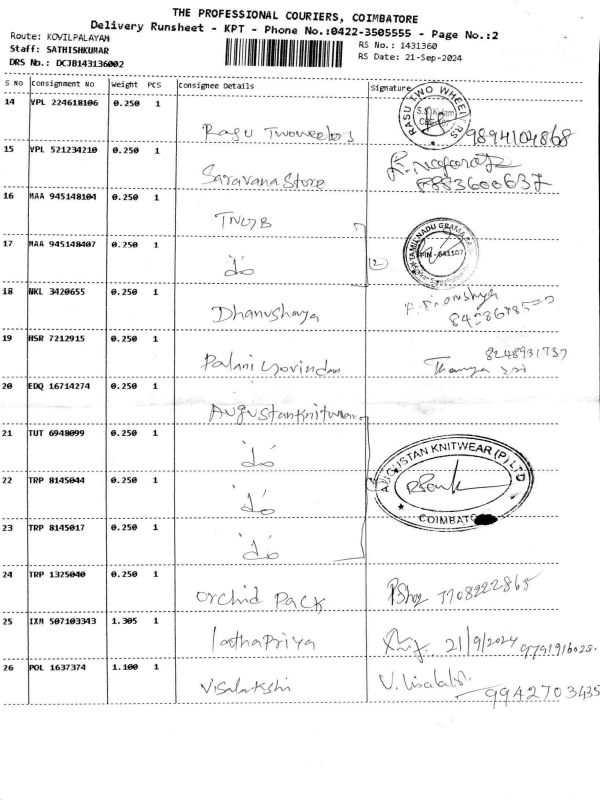 THE PROFESSIONAL COURIERS, COIMBATORE
Delivery Runsheet - KPT - Phone No.:0422-3505555 - Page No.:2
Route: KOVILPALAYAM
Staff: SATHISHKUMAR
DRS No.: DCJB143136002
RS No.: 1431360
RS Date: 21-Sep-2024
S NO Consignment No Weight PCS Consignee Details Signature
14 VPL 224618106 0.250 1
RASU TWO WHEELERS
Rasu Twoweelers 9894104868
15 VPL 521234210 0.250 1
Saravana Store 8883600637
16 MAA 945148104 0.250 1
TNGB
17 MAA 945148407 0.250 1
TAMILNADU GRAMA
641107
do 2
18 NKL 3420655 0.250 1
Dhanushaya
19 HSR 7212915 0.250 1
Palani Govindan 8248931737
20 EDQ 16714274 0.250 1
Augustanknitwear
21 TUT 6948099 0.250 1
do
22 TRP 8145044 0.250 1
AUGUSTAN KNITWEAR (P) LTD
COIMBATO
do
23 TRP 8145017 0.250 1
do
24 TRP 1325040 0.250 1
orchid Pack 7708222865
25 IXM 507103343 1.305 1
lathapriya 21/9/2024 9791916028.
26 POL 1637374 1.100 1
Visalakshi V. Visalakshi. 9942703435